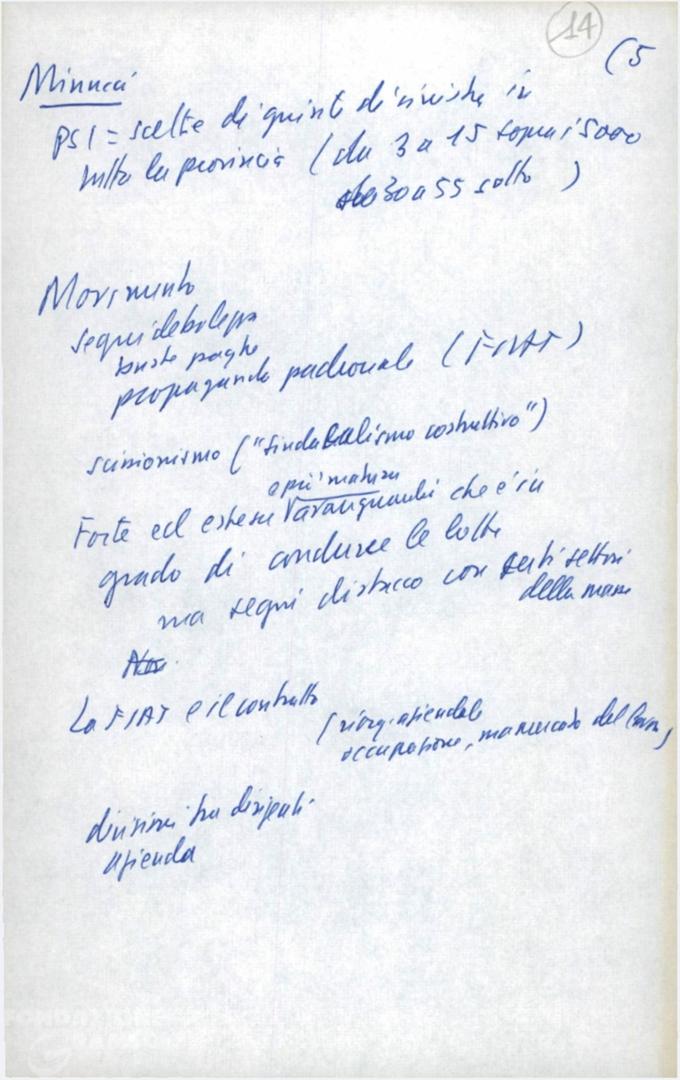 14
(5
Minucci
PSI = scelte di giunte di sinistra in
tutta la provincia (da 3 a 15 sopra i 5000
da 30 a 55 sotto)
Movimento
segni debolezza
buste paghe
propaganda padronale (FIAT)
scissionismo ("sindacalismo costruttivo")
e più matura
Forte ed estesa avanguardia che è in
grado di condurre le lotte
ma segni distacco con certi settori
della massa
Non
La FIAT e il contratto
(riorg. aziendale
occupazione, mercato del lavoro)
divisioni tra dirigenti
azienda
FONDAZIONE
GRAMSCI